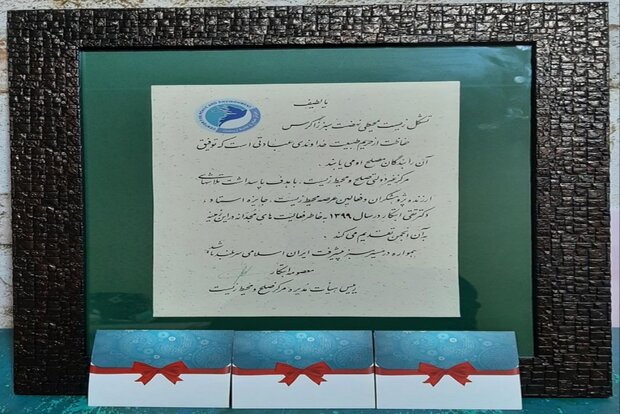 یا لطیف
تشکل زیست محیطی نهضت سبز زاگرس
حفاظت از حریم طبیعت خداوندی عبادتی است که توفیق
آن را بندگان مصلح او می یابند.
مرکز غیر دولتی صلح و محیط زیست، با هدف پاسداشت تلاشهای
ارزنده پژوهشگران و فعالین عرصه محیط زیست، جایزه استاد
دکتر تقی ابتکار در سال ۱۳۹۹ به خاطر فعالیت های مجدانه در این زمینه
به آن انجمن تقدیم می کند.
همواره در مسیر سبز پیشرفت ایران اسلامی سربلند باشید
معصومه ابتکار
رییس هیأت مدیره مرکز صلح و محیط زیست